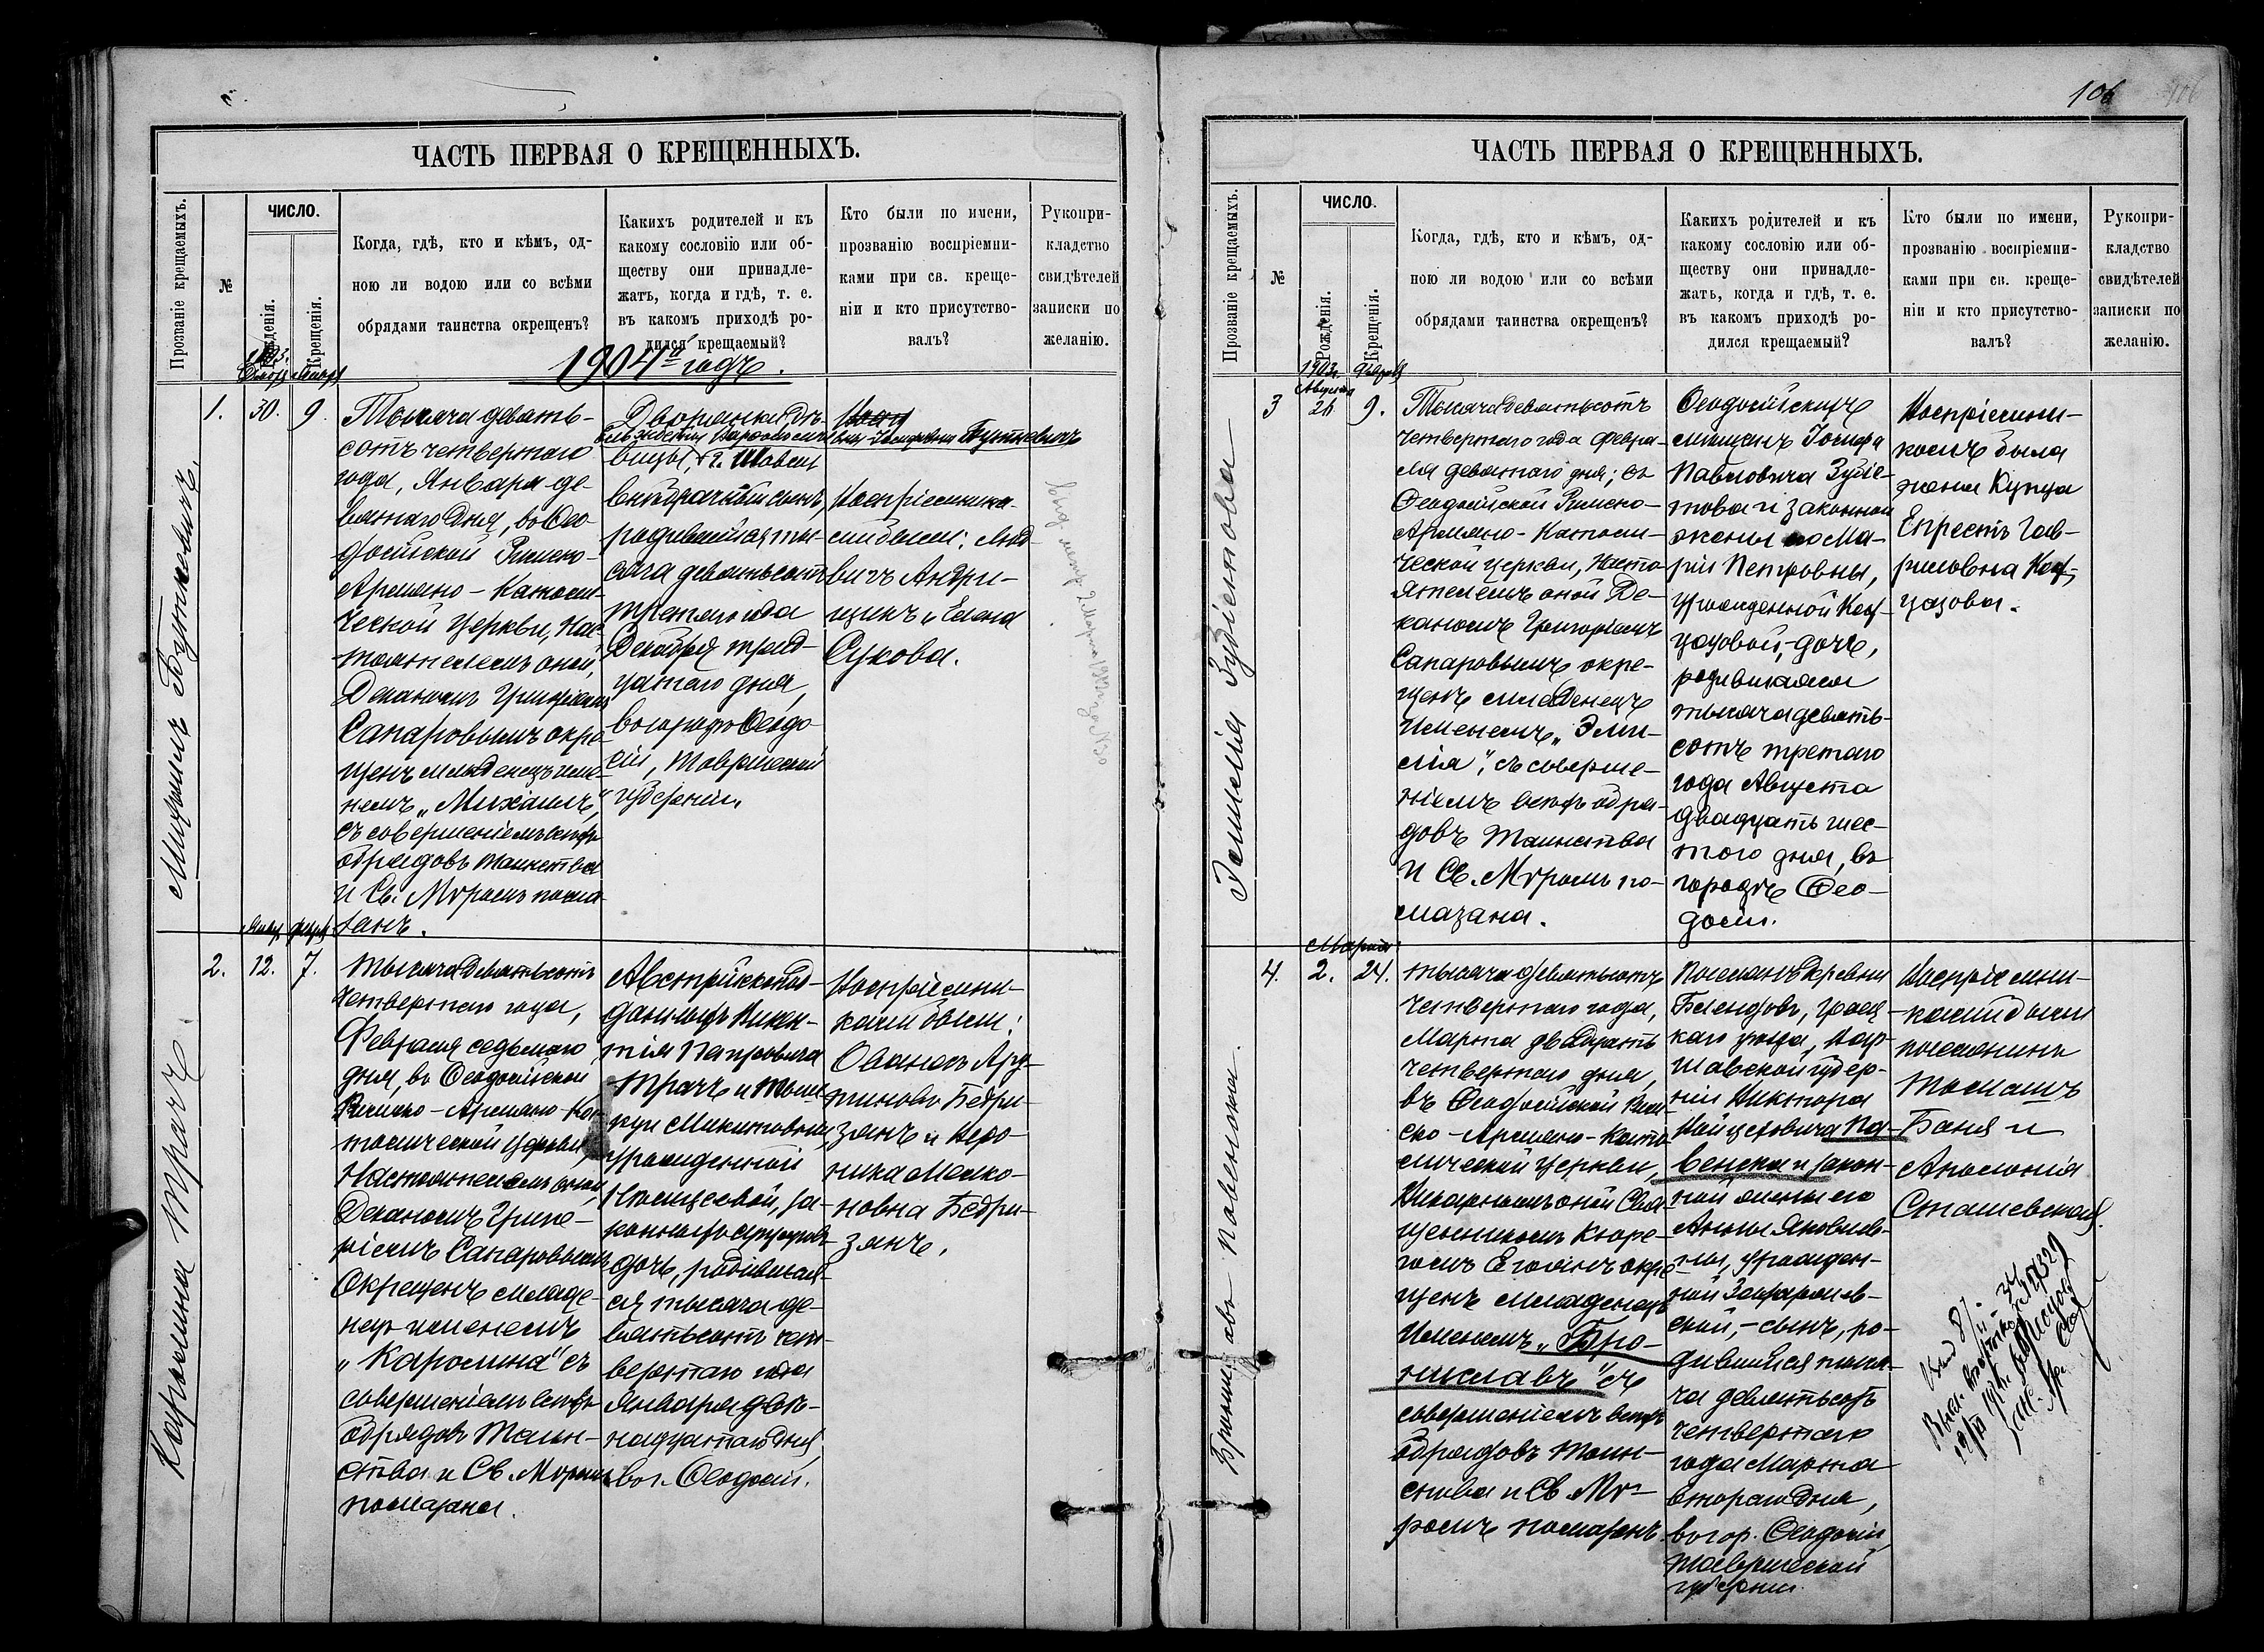 106
ЧАСТЬ ПЕРВАЯ О КРЕЩЕННЫХЪ.
Прозваніе крещаемыхъ.
№
ЧИСЛО.
Рожденія.
Крещенія.
Когда, гдѣ, кто и кѣмъ, од-
ною ли водою или со всѣми
обрядами таинства окрещенъ?
Какихъ родителей и къ
какому сословію или об-
ществу они принадле-
жатъ, когда и гдѣ, т. е.
въ какомъ приходѣ ро-
дился крещаемый?
Кто были по имени,
прозванію воспріемни-
ками при св. креще-
ніи и кто присутство-
валъ?
Рукопри-
кладство
свидѣтелей
записки по
желанію.
1904й годъ.
Михаилъ Буткевичъ.
1.
1903.
30.
9
Тысяча девять-
сотъ четвертаго
года, Января де-
вятаго дня, въ Ѳео-
досійской Римско-
Армяно-Католи-
ческой церкви, Нас-
тоятелемъ оной,
Деканомъ Григоріемъ
Сапаровымъ окре-
щенъ младенецъ име-
немъ „Михаилъ",
съ совершеніемъ всѣхъ
обрядовъ таинства
и Св. Мѵромъ пома-
занъ.
Дворянки
Буткевичъ
внѣбрачный сынъ,
родившійся ты-
сяча девятьсотъ
третьяго года
Декабря трид-
цатаго дня,
въ городѣ Ѳеодо-
сіи, Таврической
губерніи.
Воспріемника-
ми были: Люд-
вигъ Андри-
щикъ и Елена
Сукова.
Каролина Трачъ.
2.
Янв.
12.
Февр.
7.
тысяча девятьсотъ
четвертаго года,
Февраля седьмаго
дня, въ Ѳеодосійской
Римско-Армяно-Ка-
толической церкви,
Настоятелемъ оной,
Деканомъ Григо-
ріемъ Сапаровымъ
Окрещенъ младе-
нецъ именемъ
„Каролина" съ
совершеніемъ всѣхъ
обрядовъ Таин-
ства и Св. Мѵромъ
помазана.
Австрійскопод-
данныхъ Викен-
тія Петровича
Трачъ и
Микитовны,
урожденной
за-
конныхъ супруговъ
дочь, родившая-
ся тысяча де-
вятьсотъ чет-
вертаго года
Января двѣ-
надцатаго дня,
въ г. Ѳеодосіи.
Воспріемни-
ками были:
Ованесъ Ару-
тиновъ Бедри-
зянъ и Веро-
ника Мелко-
новна Бедри-
зянъ.
106
ЧАСТЬ ПЕРВАЯ О КРЕЩЕННЫХЪ.
Прозваніе крещаемыхъ.
№
ЧИСЛО.
Рожденія.
Крещенія.
Когда, гдѣ, кто и кѣмъ, од-
ною ли водою или со всѣми
обрядами таинства окрещенъ?
Какихъ родителей и къ
какому сословію или об-
ществу они принадле-
жатъ, когда и гдѣ, т. е.
въ какомъ приходѣ ро-
дился крещаемый?
Кто были по имени,
прозванію воспріемни-
ками при св. креще-
ніи и кто присутство-
валъ?
Рукопри-
кладство
свидѣтелей
записки по
желанію.
3
1903г.
Августа
26
9.
Тысяча девятьсотъ
четвертаго года Февра-
ля девятаго дня; въ
Ѳеодосійской Римско-
Армяно-Католи-
ческой церкви, Насто-
ятелемъ оной Де-
каномъ Григоріемъ
Сапаровымъ окре-
щенъ младенецъ
Именемъ „Эми-
лія", съ соверше-
ніемъ всѣхъ обря-
довъ Таинства
и Св. Мѵромъ по-
мазана.
Ѳеодосійскихъ
мѣщанъ Іосифа
Павловича
и законной
жены его Ма-
ріи Петровны,
урожденной
дочь,
родившаяся
тысяча девять-
сотъ третьяго
года Августа
двадцать шес-
таго дня, въ
городѣ Ѳео-
досіи.
Воспріемни-
комъ была
жена Купца
4.
Марта
2.
24.
тысяча девятьсотъ
четвертаго года,
Марта двадцать
четвертаго дня,
въ Ѳеодосійской Рим-
ско-Армяно-Като-
лической церкви,
Викарнымъ оной Свя-
щенникомъ Кюре-
гомъ окре-
щенъ младенецъ
Именемъ „Бро-
ниславъ" съ
совершеніемъ всѣхъ
обрядовъ таин-
ства и Св. Мѵ-
ромъ помазанъ.
уѣзда, Вар-
шавской губер-
ніи Виктора
Войцеховича Па-
венска и закон-
ной жены его
Анны Яковлев-
ны, урожден-
ной
ской, - сынъ, ро-
дившійся тыся-
ча девятьсотъ
четвертаго
года Марта
втораго дня,
въ гор. Ѳеодосіи,
Таврической
губерніи.
Воспріемни-
ками были
поселянинъ
Томашъ
Баня и
Аполонія
Сташевская.